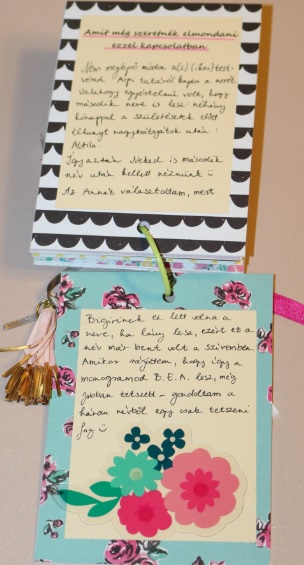 Amit még szeretnék elmondani
ezzel kapcsolatban
Nem meglepő módon a(z) (iker)test-
véred Api tatáról kapta a nevét.
Valahogy egyértelmű volt, hogy
második neve is lesz: néhány
hónappal a születésetek előtt
elhunyt nagybátyátok után:
Attila.
Így aztán Neked is második
név után kellett néznünk ☺
Az Annát választottam, mert
Biginek ez lett volna a
neve, ha lány lesz, ezért ez a
név már bent volt a szívemben.
Amikor rájöttem, hogy így a
monogramod B.E.A. lesz, még
jobban tetszett - gondoltam a
három névből egy csak tetszeni
fog ☺